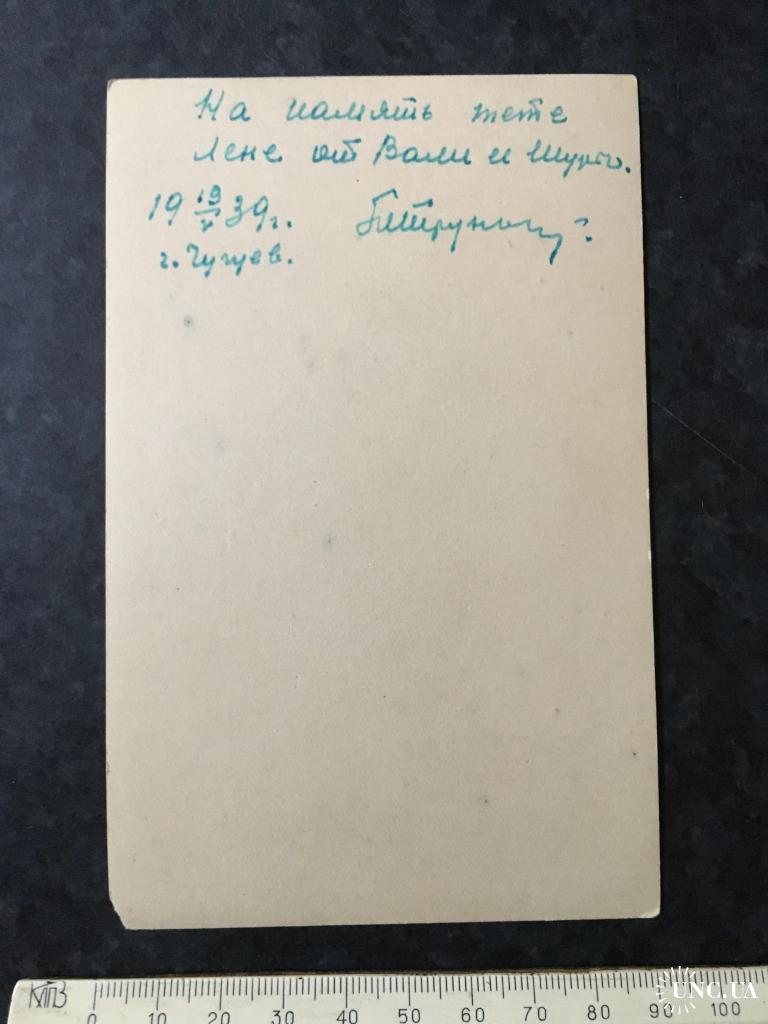 На память тете
Лене от Вали и Шуры.
19 19/V 39г.
г. Чугуев.
КПВ
0 10 20 30 40 50 60 70 80 90 100
UNC.UA